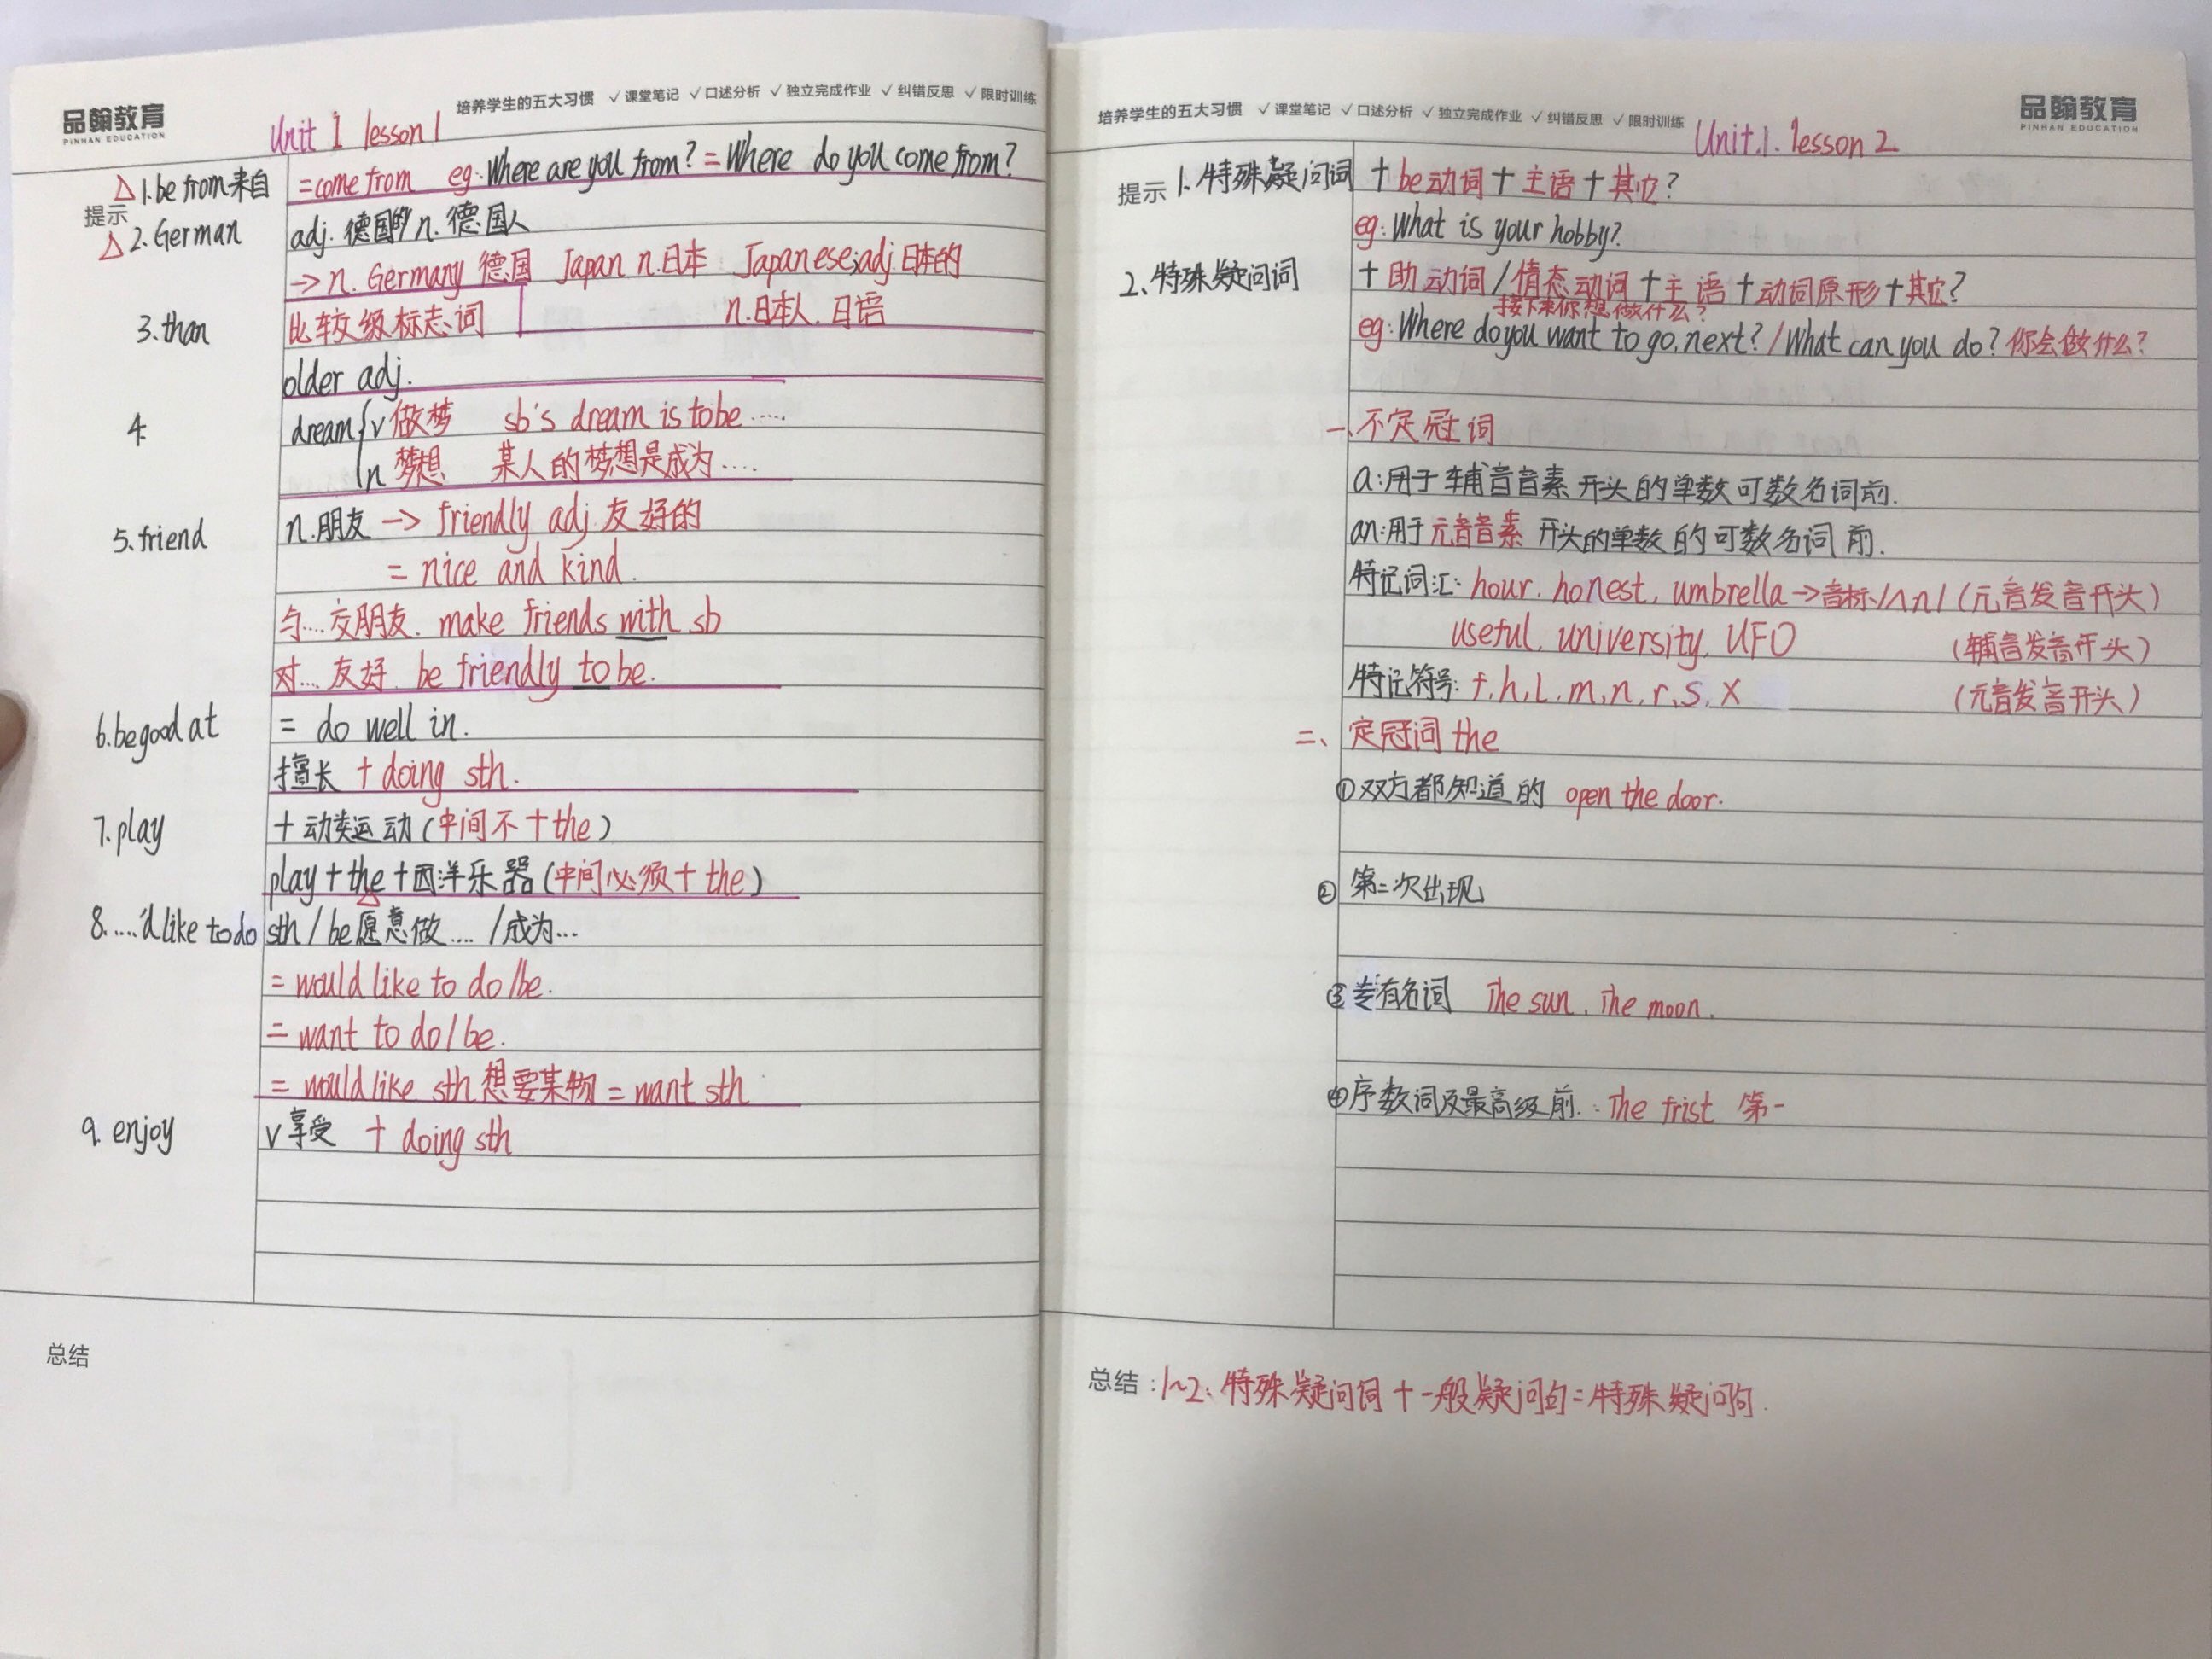 品翰教育
PINHAN EDUCATION
培养学生的五大习惯 ✓课堂笔记 ✓口述分析 ✓独立完成作业 ✓纠错反思 ✓限时训练
Unit 1 lesson 1
提示
△1.be from来自 =come from eg:Where are you from?=Where do you come from?
△2.German adj.德国的 n.德国人
→n.Germany德国 Japan n.日本 Japanese;adj.日本的
n.日本人.日语
3.than 比较级标志词
older adj.
4. dream{v做梦 sb's dream is to be .....
n梦想 某人的梦想是成为....
5.friend n.朋友→friendly adj.友好的
= nice and kind.
与...交朋友. make friends with sb
对...友好. be friendly to be.
6.be good at = do well in.
擅长 + doing sth.
7.play +动类运动(中间不+the)
play+the+西洋乐器(中间必须+the)
△
8.....'d like to do sth/be愿意做..../成为...
= would like to do/be.
= want to do/be.
= would like sth想要某物=want sth
9. enjoy v享受 + doing sth
总结
培养学生的五大习惯 ✓课堂笔记 ✓口述分析 ✓独立完成作业 ✓纠错反思 ✓限时训练
品翰教育
PINHAN EDUCATION
Unit.1. lesson 2
提示 1.特殊疑问词 +be动词+主语+其它?
eg:What is your hobby?
2、特殊疑问词 +助动词/情态动词+主语+动词原形+其它?
接下来你想做什么?
eg:Where do you want to go.next?/What can you do?你会做什么?
一、不定冠词
a:用于辅音音素开头的单数可数名词前.
an:用于元音音素开头的单数的可数名词前.
特记词汇:hour.honest.umbrella→音标/ʌn/(元音发音开头)
useful.university.UFO (辅音发音开头)
特记符号:f.h.l.m.n.r.s.x (元音发音开头)
二、定冠词the
①双方都知道的 open the door.
②第二次出现
③专有名词 The sun.The moon.
④序数词及最高级前.:The frist 第一
总结:1~2:特殊疑问词+一般疑问句=特殊疑问句.